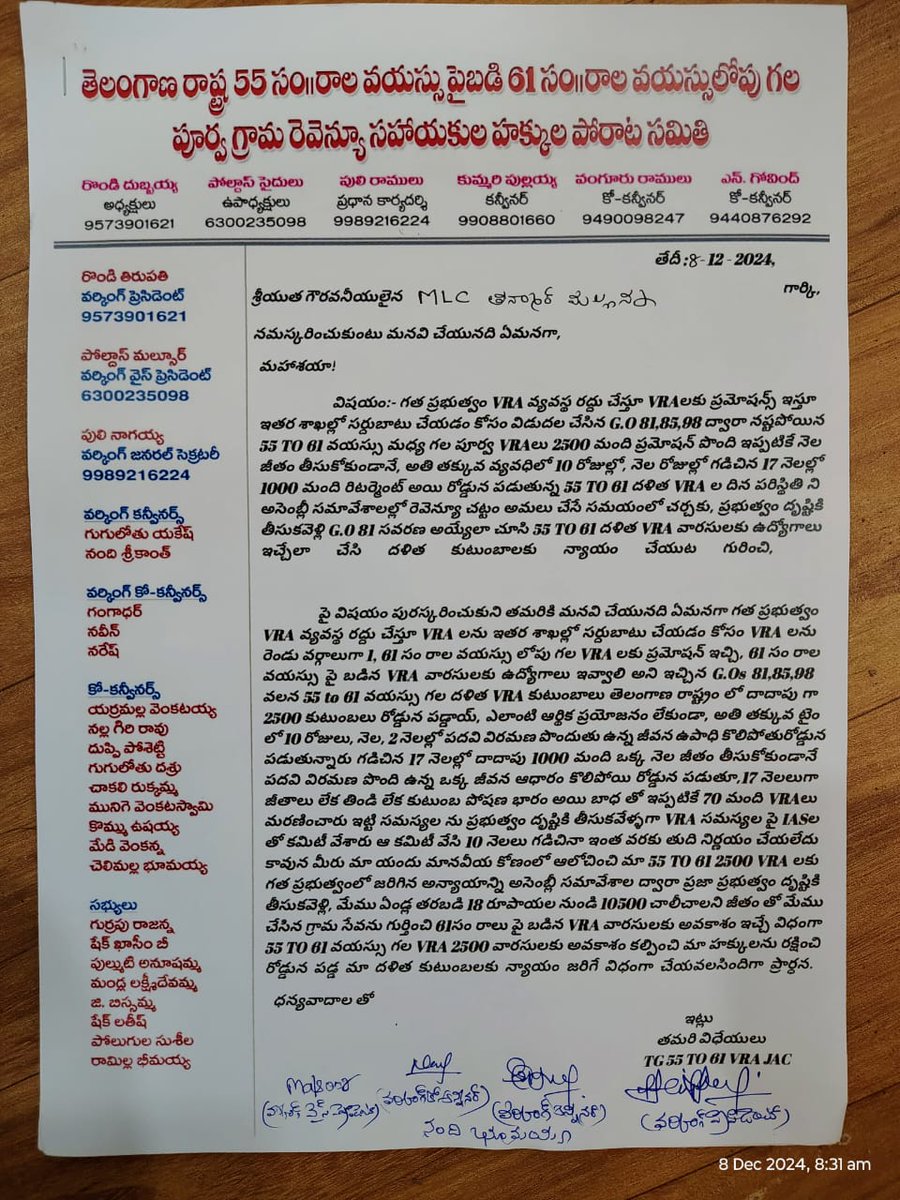 తెలంగాణ రాష్ట్ర 55 సం॥రాల వయస్సు పైబడి 61 సం॥రాల వయస్సులోపు గల
పూర్వ గ్రామ రెవెన్యూ సహాయకుల హక్కుల పోరాట సమితి
రొండి దుబ్బయ్య
అధ్యక్షులు
9573901621
పోల్దాస్ సైదులు
ఉపాధ్యక్షులు
6300235098
పులి రాములు
ప్రధాన కార్యదర్శి
9989216224
కుమ్మరి పుల్లయ్య
కన్వీనర్
9908801660
వంగూరు రాములు
కో-కన్వీనర్
9490098247
ఎన్. గోవింద్
కో-కన్వీనర్
9440876292
రొండి తిరుపతి
వర్కింగ్ ప్రెసిడెంట్
9573901621
పోల్దాస్ మల్సూర్
వర్కింగ్ వైస్ ప్రెసిడెంట్
6300235098
పులి నాగయ్య
వర్కింగ్ జనరల్ సెక్రటరీ
9989216224
వర్కింగ్ కన్వీనర్స్
గుగులోతు యకేష్
నంది శ్రీకాంత్
వర్కింగ్ కో-కన్వీనర్స్
గంగాధర్
నవీన్
నరేష్
కో-కన్వీనర్స్
యర్రమల్ల వెంకటయ్య
నల్ల గిరి రావు
దుప్పి పోశెట్టి
గుగులోతు దశ్రు
చాకలి రుక్కమ్మ
మునిగె వెంకటస్వామి
కొమ్ము ఉషయ్య
మేడి వెంకన్న
చెలిమల్ల భూమయ్య
సభ్యులు
గుర్రపు రాజన్న
షేక్ ఖాసీం బీ
పుల్ముటి అనూషమ్మ
మండ్ల లక్ష్మీదేవమ్మ
జి. బిస్సమ్మ
షేక్ లతీష్
పోలుగుల సుశీల
రామిల్ల భీమయ్య
తేదీ :8-12-2024,
శ్రీయుత గౌరవనీయులైన MLC గార్కి,
నమస్కరించుకుంటు మనవి చేయునది ఏమనగా,
మహాశయా!
విషయం:- గత ప్రభుత్వం VRA వ్యవస్థ రద్దు చేస్తూ VRAలకు ప్రమోషన్స్ ఇస్తూ
ఇతర శాఖల్లో సర్దుబాటు చేయడం కోసం విడుదల చేసిన G.O 81,85,98 ద్వారా నష్టపోయిన
55 TO 61 వయస్సు మధ్య గల పూర్వ VRAలు 2500 మంది ప్రమోషన్ పొంది ఇప్పటికే నెల
జీతం తీసుకోకుండానే, అతి తక్కువ వ్యవధిలో 10 రోజుల్లో, నెల రోజుల్లో గడిచిన 17 నెలల్లో
1000 మంది రిటర్మెంట్ అయి రోడ్డున పడుతున్న 55 TO 61 దళిత VRA ల దిన పరిస్థితి ని
అసెంబ్లీ సమావేశాలల్లో రెవెన్యూ చట్టం అమలు చేసే సమయంలో చర్చకు, ప్రభుత్వం దృష్టికి
తీసుకవెళ్లి G.O 81 సవరణ అయ్యేలా చూసి 55 TO 61 దళిత VRA వారసులకు ఉద్యోగాలు
ఇచ్చేలా చేసి దళిత కుటుంబాలకు న్యాయం చేయుట గురించి,
పై విషయం పురస్కరించుకుని తమరికి మనవి చేయునది ఏమనగా గత ప్రభుత్వం
VRA వ్యవస్థ రద్దు చేస్తూ VRA లను ఇతర శాఖల్లో సర్దుబాటు చేయడం కోసం VRA లను
రెండు వర్గాలుగా 1, 61 సం రాల వయస్సు లోపు గల VRA లకు ప్రమోషన్ ఇచ్చి, 61 సం రాల
వయస్సు పై బడిన VRA వారసులకు ఉద్యోగాలు ఇవ్వాలి అని ఇచ్చిన G.Os 81,85,98
వలన 55 to 61 వయస్సు గల దళిత VRA కుటుంబాలు తెలంగాణ రాష్ట్రం లో దాదాపు గా
2500 కుటుంబలు రోడ్డున పడ్డాయ్, ఎలాంటి ఆర్థిక ప్రయోజనం లేకుండా, అతి తక్కువ టైం
లో 10 రోజులు, నెల, 2 నెలల్లో పదవి విరమణ పొందుతు ఉన్న జీవన ఉపాధి కొలిపోతురోడ్డున
పడుతున్నారు గడిచిన 17 నెలల్లో దాదాపు 1000 మంది ఒక్క నెల జీతం తీసుకోకుండానే
పదవి విరమణ పొంది ఉన్న ఒక్క జీవన ఆధారం కొలిపోయి రోడ్డున పడుతూ,17 నెలలుగా
జీతాలు లేక తిండి లేక కుటుంబ పోషణ భారం అయి బాధ తో ఇప్పటికే 70 మంది VRAలు
మరణించారు ఇట్టి సమస్యల ను ప్రభుత్వం దృష్టికి తీసుకవేళ్ళగా VRA సమస్యల పై IASల
తో కమిటీ వేశారు ఆ కమిటీ వేసి 10 నెలలు గడిచినా ఇంత వరకు తుది నిర్ణయం చేయలేదు
కావున మీరు మా యందు మాననీయ కోణంలో ఆలోచించి మా 55 TO 61 2500 VRA లకు
గత ప్రభుత్వంలో జరిగిన అన్యాయాన్ని అసెంబ్లీ సమావేశాల ద్వారా ప్రజా ప్రభుత్వం దృష్టికి
తీసుకవెళ్లి, మేము ఏండ్ల తరబడి 18 రూపాయల నుండి 10500 చాలీచాలని జీతం తో మేము
చేసిన గ్రామ సేవను గుర్తించి 61సం రాలు పై బడిన VRA వారసులకు అవకాశం ఇచ్చే విధంగా
55 TO 61 వయస్సు గల VRA 2500 వారసులకు అవకాశం కల్పించి మా హక్కులను రక్షించి
రోడ్డున పడ్డ మా దళిత కుటుంబలకు న్యాయం జరిగే విధంగా చేయవలసిందిగా ప్రార్థన.
ధన్యవాదాల తో
ఇట్లు
తమరి విధేయులు
TG 55 TO 61 VRA JAC
నంది భూమయ్య
8 Dec 2024, 8:31 am